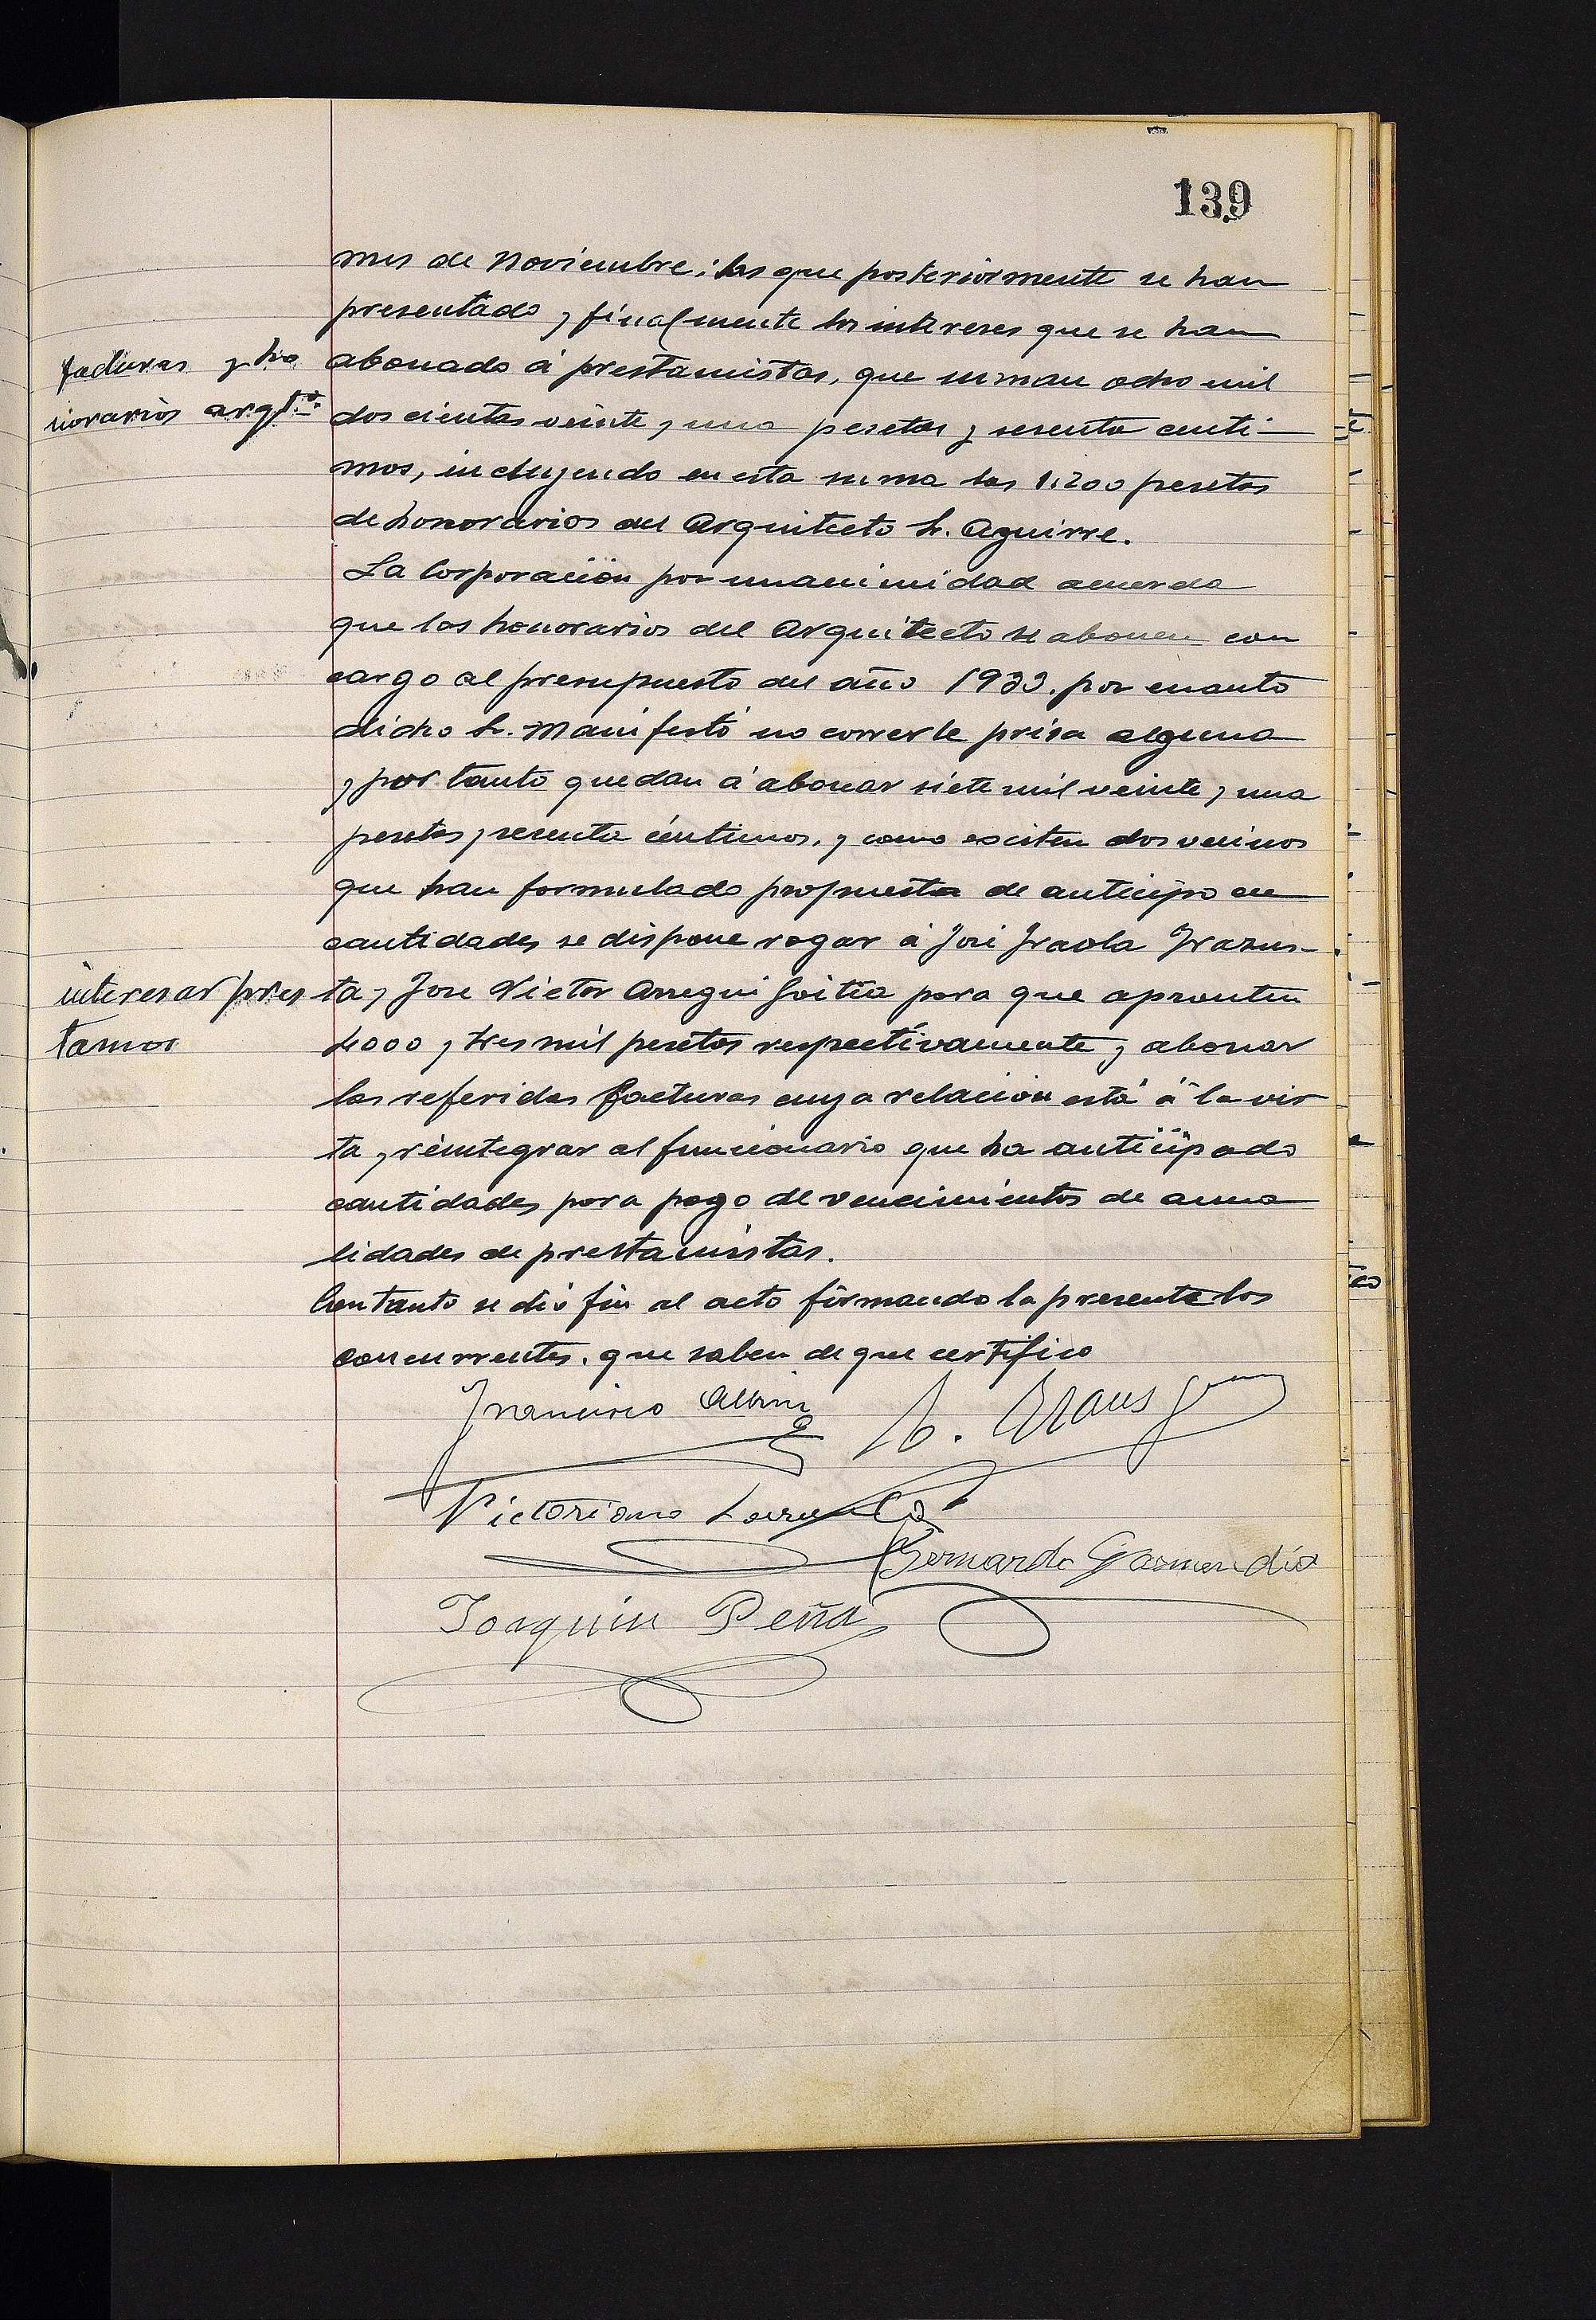 139
mes de Noviembre; las que posteriormente se han
presentado y finalmente los intereses que se han
facturas y ho
norarios arqt.to
abonado á prestamistas, que suman ocho mil
doscientas veinte y una pesetas y sesenta centi-
mos, incluyendo en esta suma las 1.200 pesetas
de honorarios del Arquitecto Sr. Aguirre.
La Corporación por unanimidad acuerda
que los honorarios del Arquitecto se abonen con
cargo al presupuesto del año 1933. por cuanto
dicho Sr. Manifestó no correrle prisa alguna
y por tanto quedan á abonar siete mil veinte y una
pesetas y sesenta céntimos. y como exciten dos vecinos
que han formulado propuesta de anticipo de
cantidades se dispone rogar á José Iraola Irazus-
interesar pres
tamos
ta y Jose Victor Arregui Goitia para que apronten
4000 y tres mil pesetas respectivamente y abonar
las referidas facturas cuya relación está á la vis
ta y reintegrar al funcionario que ha anticipado
cantidades para pago de vencimientos de anua
lidades de prestamistas.
Con tanto se dió fin al acto firmando la presente los
concurrentes. que saben de que certifico
Francisco Albin
Victoriano
Bernardo Garmendia
Joaquin Peña